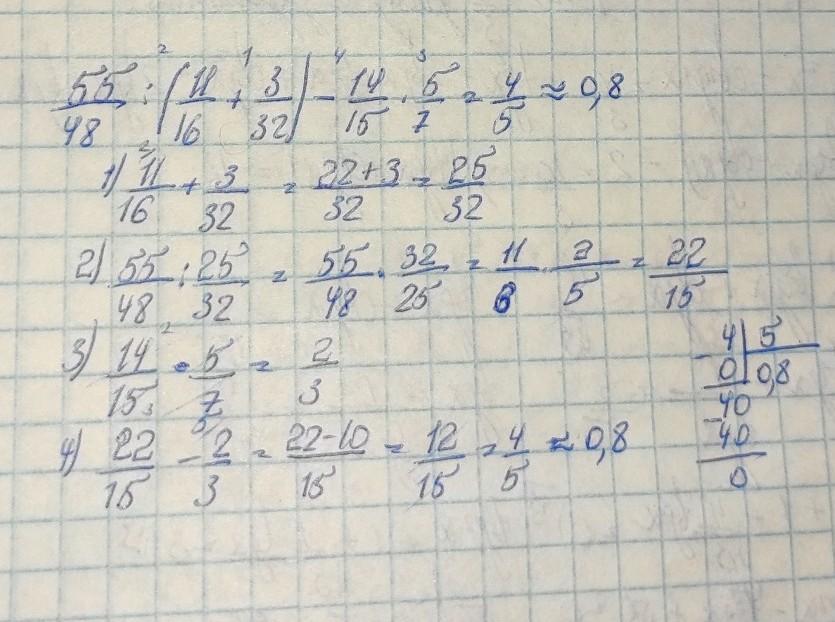 55/48 : (11/16 + 3/32) - 14/15 · 5/7 = 4/5 ≈ 0,8
1) 11/16 + 3/32 = 22+3/32 = 25/32
2) 55/48 : 25/32 = 55/48 · 32/25 = 11/6 · 2/5 = 22/15
3) 14/15 · 5/7 = 2/3
4) 22/15 - 2/3 = 22-10/15 = 12/15 = 4/5 ≈ 0,8
4 | 5
0 | 0,8
40
40
0